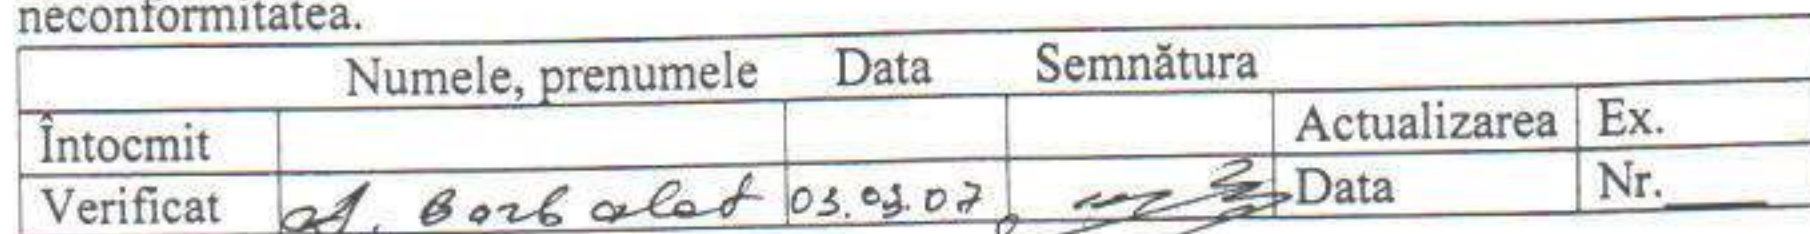 neconformitatea.
Numele, prenumele Data Semnătura
Întocmit Actualizarea Ex.
Verificat A. Borbalat 03.03.07 Data Nr.